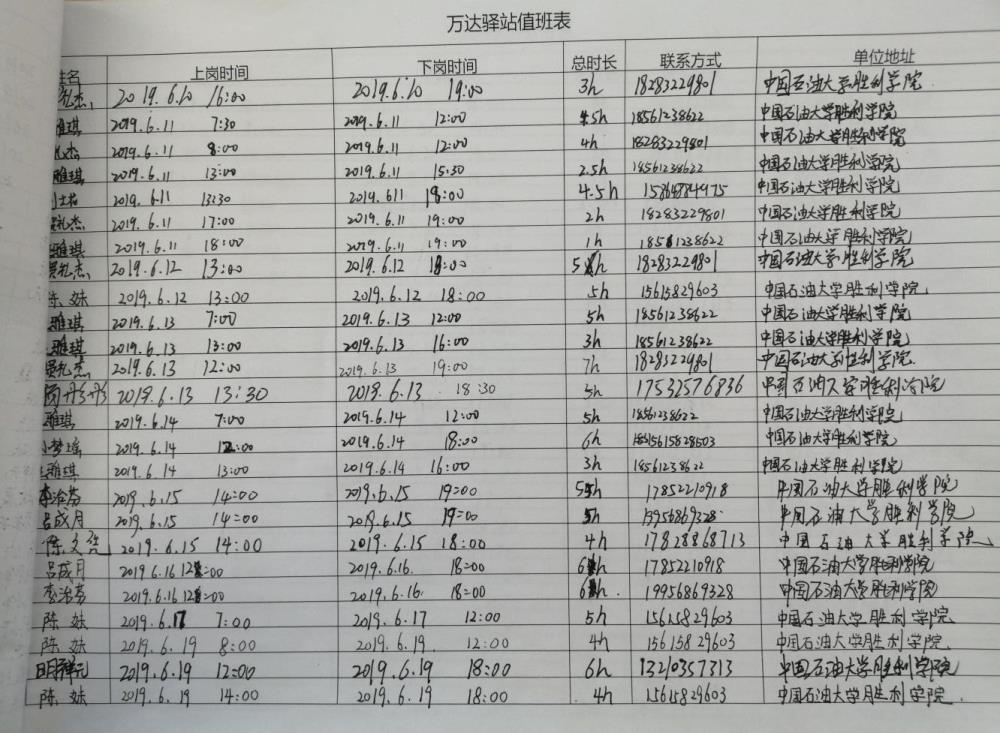 万达驿站值班表
姓名 上岗时间 下岗时间 总时长 联系方式 单位地址
礼杰 2019.6.10 16:00 2019.6.10 19:00 3h 18283229801 中国石油大学胜利学院
雅琪 2019.6.11 7:30 2019.6.11 12:00 4.5h 18561238622 中国石油大学胜利学院
礼杰 2019.6.11 8:00 2019.6.11 12:00 4h 18283229801 中国石油大学胜利学院
雅琪 2019.6.11 13:00 2019.6.11 15:30 2.5h 18561238622 中国石油大学胜利学院
2019.6.11 13:30 2019.611 18:00 4.5h 15868484975 中国石油大学胜利学院
礼杰 2019.6.11 17:00 2019.6.11 19:00 2h 18283229801 中国石油大学胜利学院
雅琪 2019.6.11 18:00 2019.6.11 19:00 1h 18561238622 中国石油大学胜利学院
礼杰 2019.6.12 13:00 2019.6.12 18:00 5h 18283229801 中国石油大学胜利学院
陈姝 2019.6.12 13:00 2019.6.12 18:00 5h 15615829603 中国石油大学胜利学院
雅琪 2019.6.13 7:00 2019.6.13 12:00 5h 18561238622 中国石油大学胜利学院
雅琪 2019.6.13 13:00 2019.6.13 16:00 3h 18561238622 中国石油大学胜利学院
礼杰 2019.6.13 12:00 2019.6.13 19:00 7h 18283229801 中国石油大学胜利学院
丹丹 2019.6.13 13:30 2019.6.13 18:30 5h 17532576836 中国石油大学胜利学院
雅琪 2019.6.14 7:00 2019.6.14 12:00 5h 18561238622 中国石油大学胜利学院
梦瑶 2019.6.14 12:00 2019.6.14 18:00 6h 中国石油大学胜利学院
雅琪 2019.6.14 13:00 2019.6.14 16:00 3h 18561238622 中国石油大学胜利学院
李治芬 2019.6.15 14:00 2019.6.15 19:00 5h 17852210918 中国石油大学胜利学院
吕成月 2019.6.15 14:00 2019.6.15 19:00 5h 19956869328 中国石油大学胜利学院
陈文 2019.6.15 14:00 2019.6.15 18:00 4h 17828868713 中国石油大学胜利学院
吕成月 2019.6.16 12:00 2019.6.16. 18:00 6h 17852210918 中国石油大学胜利学院
李治芬 2019.6.16 12:00 2019.6.16. 18:00 6h. 19956869328 中国石油大学胜利学院
陈姝 2019.6.17 7:00 2019.6.17 12:00 5h 15615829603 中国石油大学胜利学院
陈姝 2019.6.19 8:00 2019.6.19 12:00 4h 15615829603 中国石油大学胜利学院
2019.6.19 12:00 2019.6.19 18:00 6h 13210357313 中国石油大学胜利学院
陈姝 2019.6.19 14:00 2019.6.19 18:00 4h 15615829603 中国石油大学胜利学院.